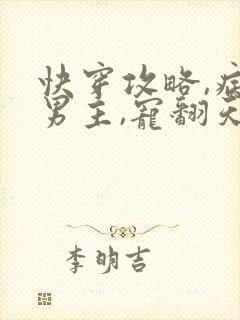 快穿攻略,病
男主,宠翻天
李明吉